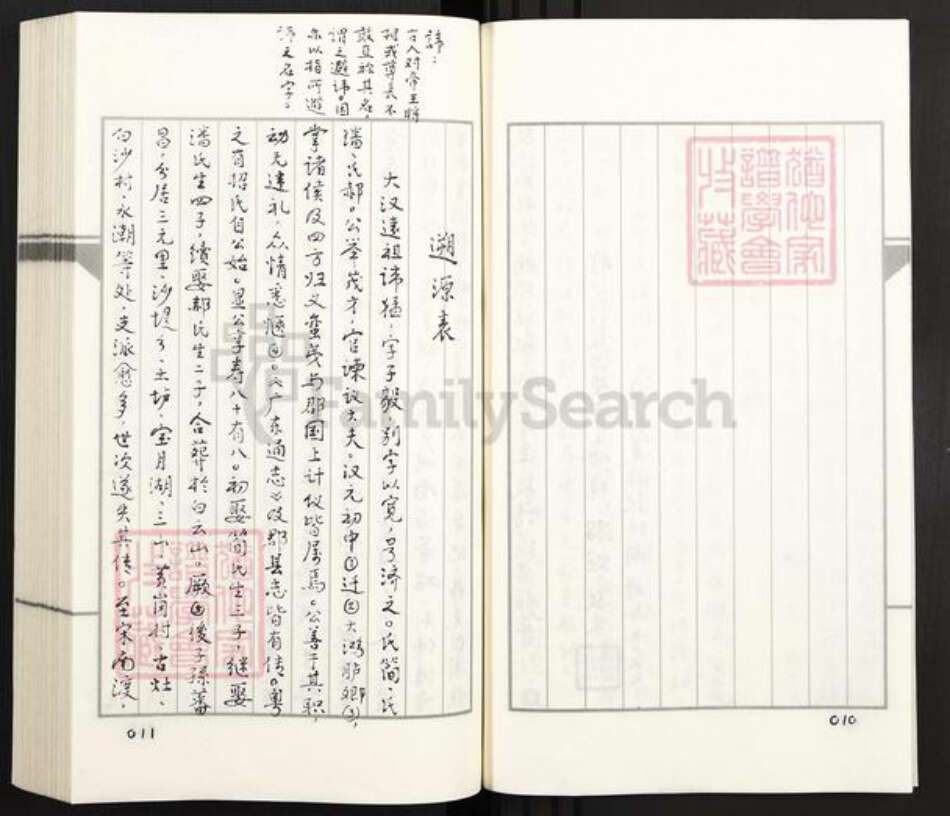 010
猶他家
譜學會
收藏
諱：
古人对帝王将
相或尊长不
敢直称其名，
谓之避讳。因
亦以指所避
讳之名字。
遡源表
大汉远祖讳猛，字子毅，别字以宽，号济之。氏简、氏
潘、氏郝。公举茂才，官谏议大夫。汉元初中①迁②大鸿胪卿③，
掌诸侯及四方归义蛮夷与郡国上计仪皆属焉。公善于其职，
动无违礼，众情悉惬④。《广东通志》及郡县志皆有传。粤
之有招氏自公始。显公享寿八十有八。初娶简氏生三子，继娶
潘氏生四子，续娶郝氏生二子，合葬于白云山。厥⑤后子孙蕃
昌，分居三元里、沙堤乡、土坊、宝月湖、三山、黄岗村、古灶、
白沙村、永潮等处，支派愈多，世次遂失其传。至宋南渡，
猶他家
譜學會
收藏
011
FamilySearch